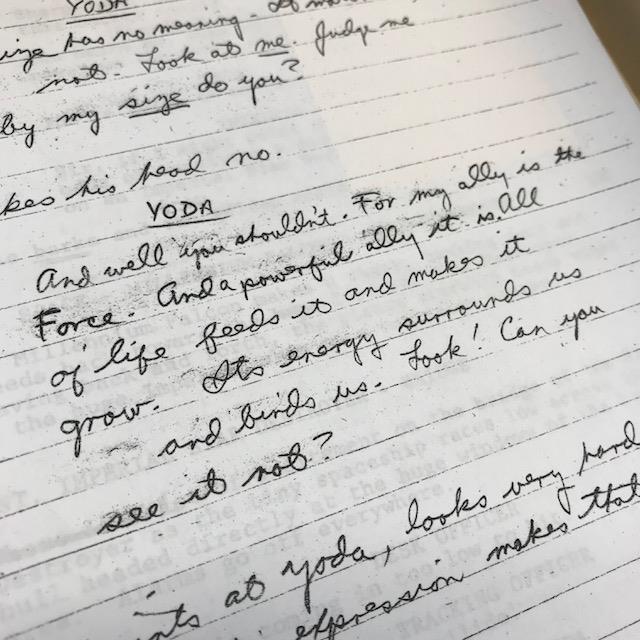 YODA
ize has no meaning. It
not. Look at me. Judge me
by my size do you?
kes his head no.
YODA
And well you shouldn't. For my ally is the
Force. And a powerful ally it is. All
of life feeds it and makes it
grow. Its energy surrounds us
and binds us. Look! Can you
see it not?
nts at yoda, looks very hard
expression makes that